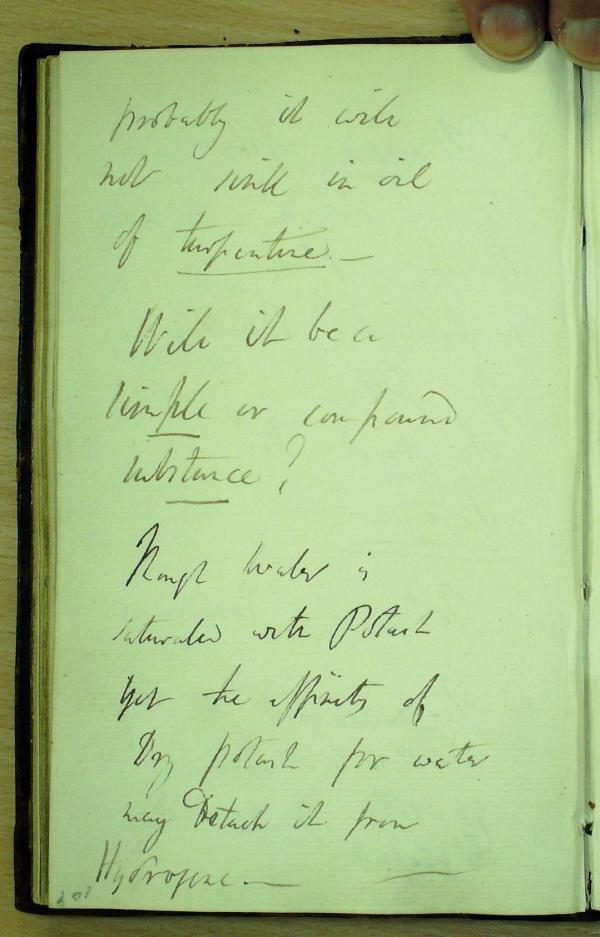 probably it will
not sink in oil
of turpentine. —
Will it be a
simple or compound
substance?
Though water is
saturated with Potash
yet the affinity of
Dry potash for water
may Detach it from
Hydrogene. —